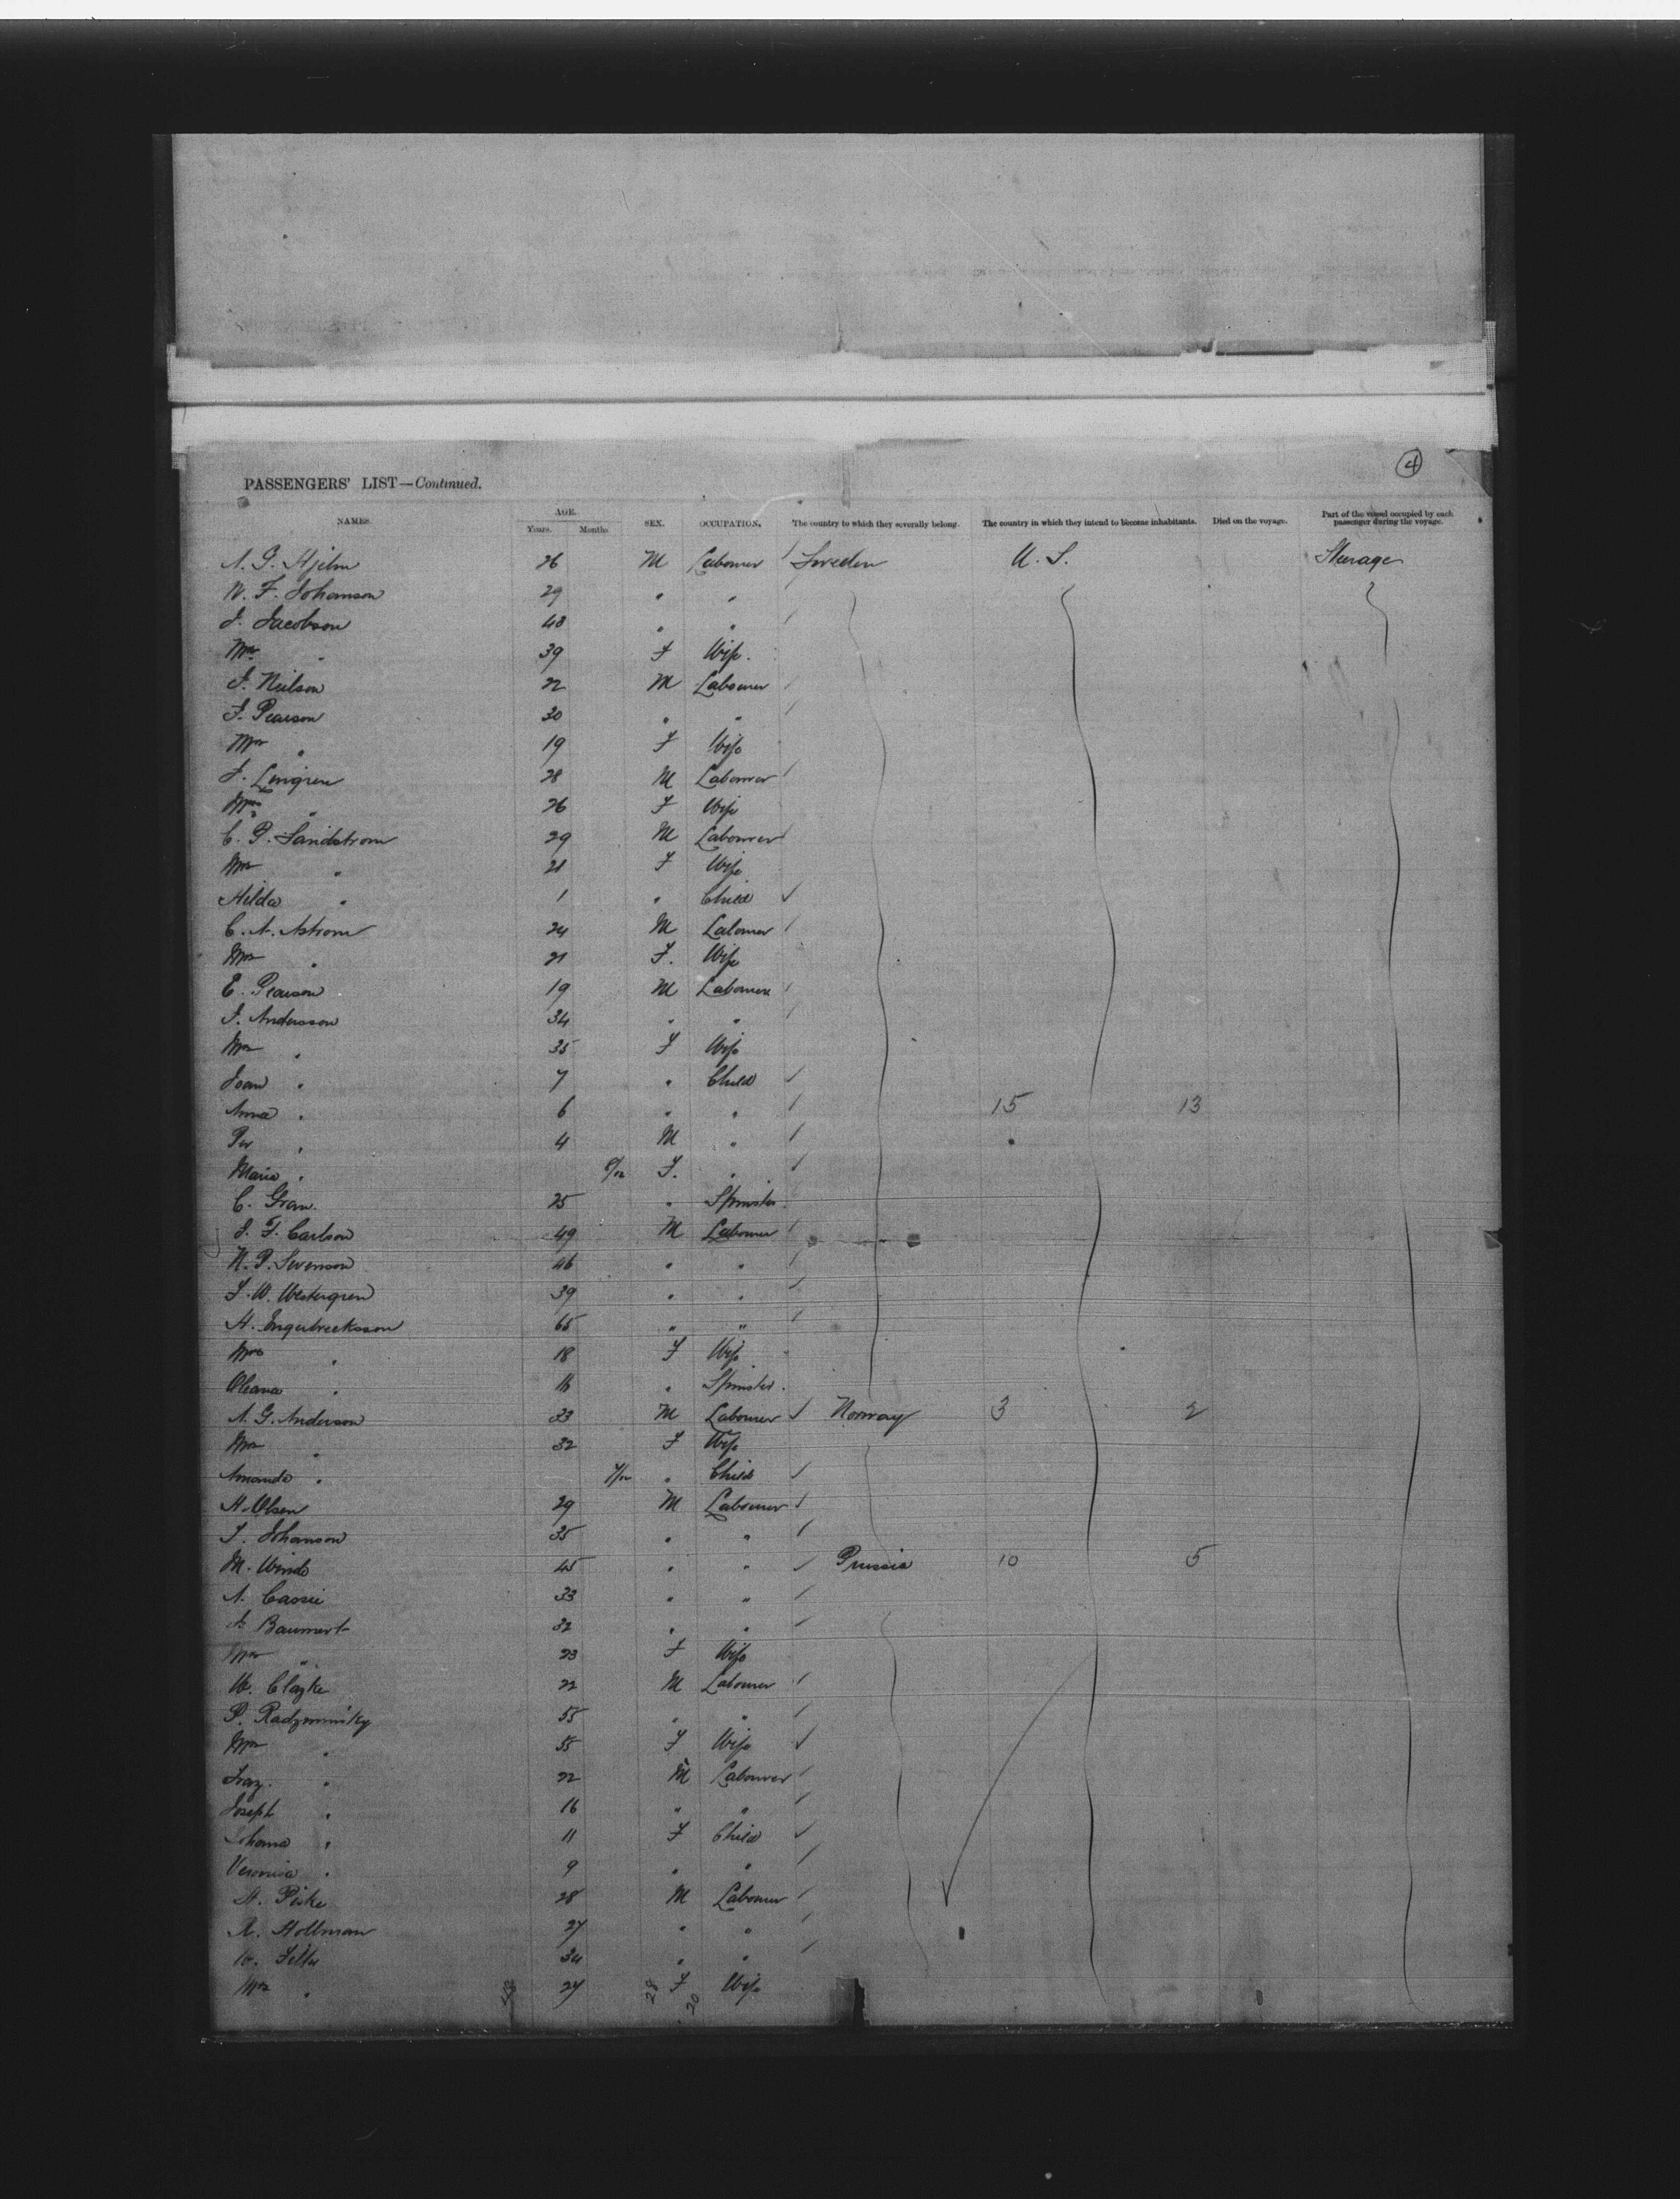 4
PASSENGERS' LIST—Continued.
NAMES. AGE. Years. Months. SEX. OCCUPATION. The country to which they severally belong. The country in which they intend to become inhabitants. Died on the voyage. Part of the vessel occupied by each passenger during the voyage.
A. G. Hjelm 26 M Labourer Sweden U. S. Steerage
N. F. Johanson 29 " "
J. Jacobson 43 " "
Mrs " 39 F Wife.
F. Neilson 22 M Labourer
F. Pearson 30 " "
Mrs " 19 F Wife
F. Lingren 28 M Labourer
Mrs " 26 F Wife
C. P. Sandstrom 29 M Labourer
Mrs " 21 F Wife
Hilda " 1 " Child
C. A. Astrom 24 M Labourer
Mrs " 21 F. Wife
E. Pearson 19 M Labourer
J. Andersson 34 " "
Mrs " 35 F Wife
Joan " 7 " Child
Anna " 6 " " 15 13
Per " 4 M "
Maria " 8/12 F. "
C. Gran. 25 " Spinster.
J. F. Carlson 49 M Labourer
N. P. Swenson 46 " "
F. W. Westergren 39 " "
H. Engebrecksson 65 " "
Mrs " 18 F Wife
Oleana " 16 " Spinster.
A. G. Anderson 33 M Labourer Norway 3 2
Mrs " 32 F Wife
Amanda " 7/12 " Child
H. Olsen 29 M Labourer
T. Johanson 35 " "
M. Windo 45 " " Prussia 10 5
A. Cassie 33 " "
Baumert 32 " "
Mrs " 23 F Wife
W. Clazke 22 M Labourer
P. Radzminsky 55 " "
Mrs " 55 F Wife
Franz. " 22 M Labourer
Joseph " 16 " "
Johana " 11 F Child
Veronica " 9 " "
A. Piske 28 M Labourer
R. Hollman 27 " "
Felter 34 " "
Mrs " 27 F Wife
28 20